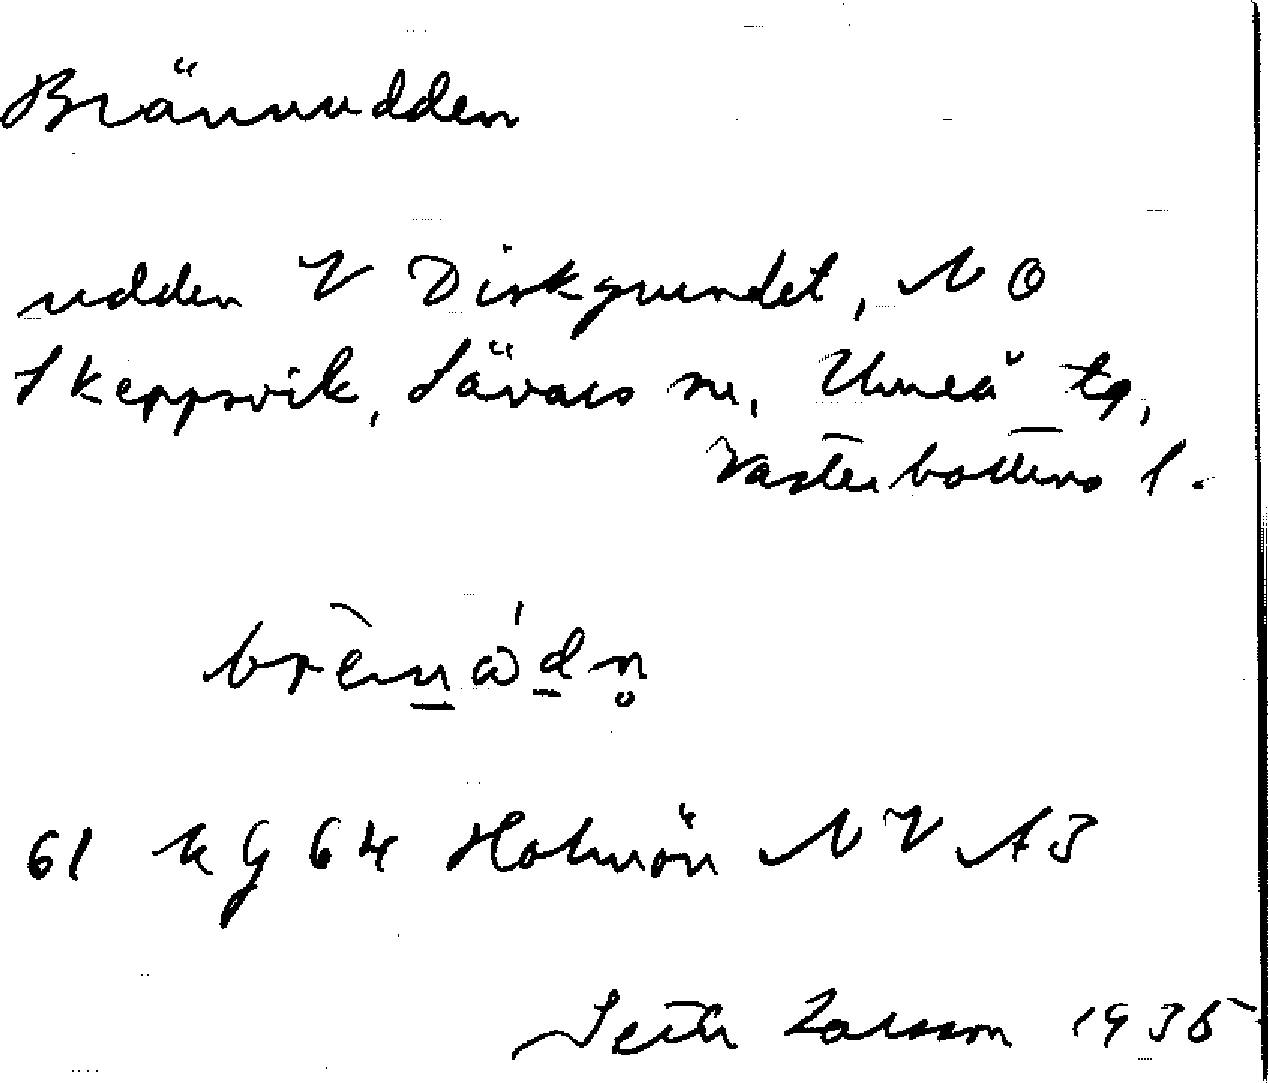 Brännudden
udden V Diskgrundet, NO
Skeppsvik, Sävars sn, Umeå tg,
Västerbottens l.
61 kg 64 Holmön NV A3
Seth Larsson 1935